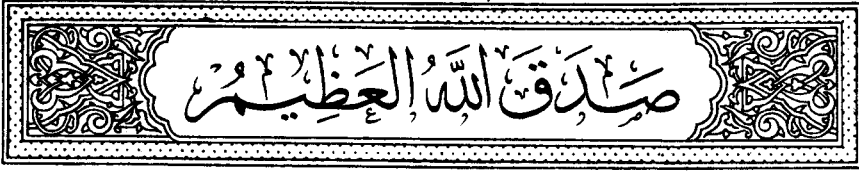 صَدَقَ اللَّهُ العَظِيمُ